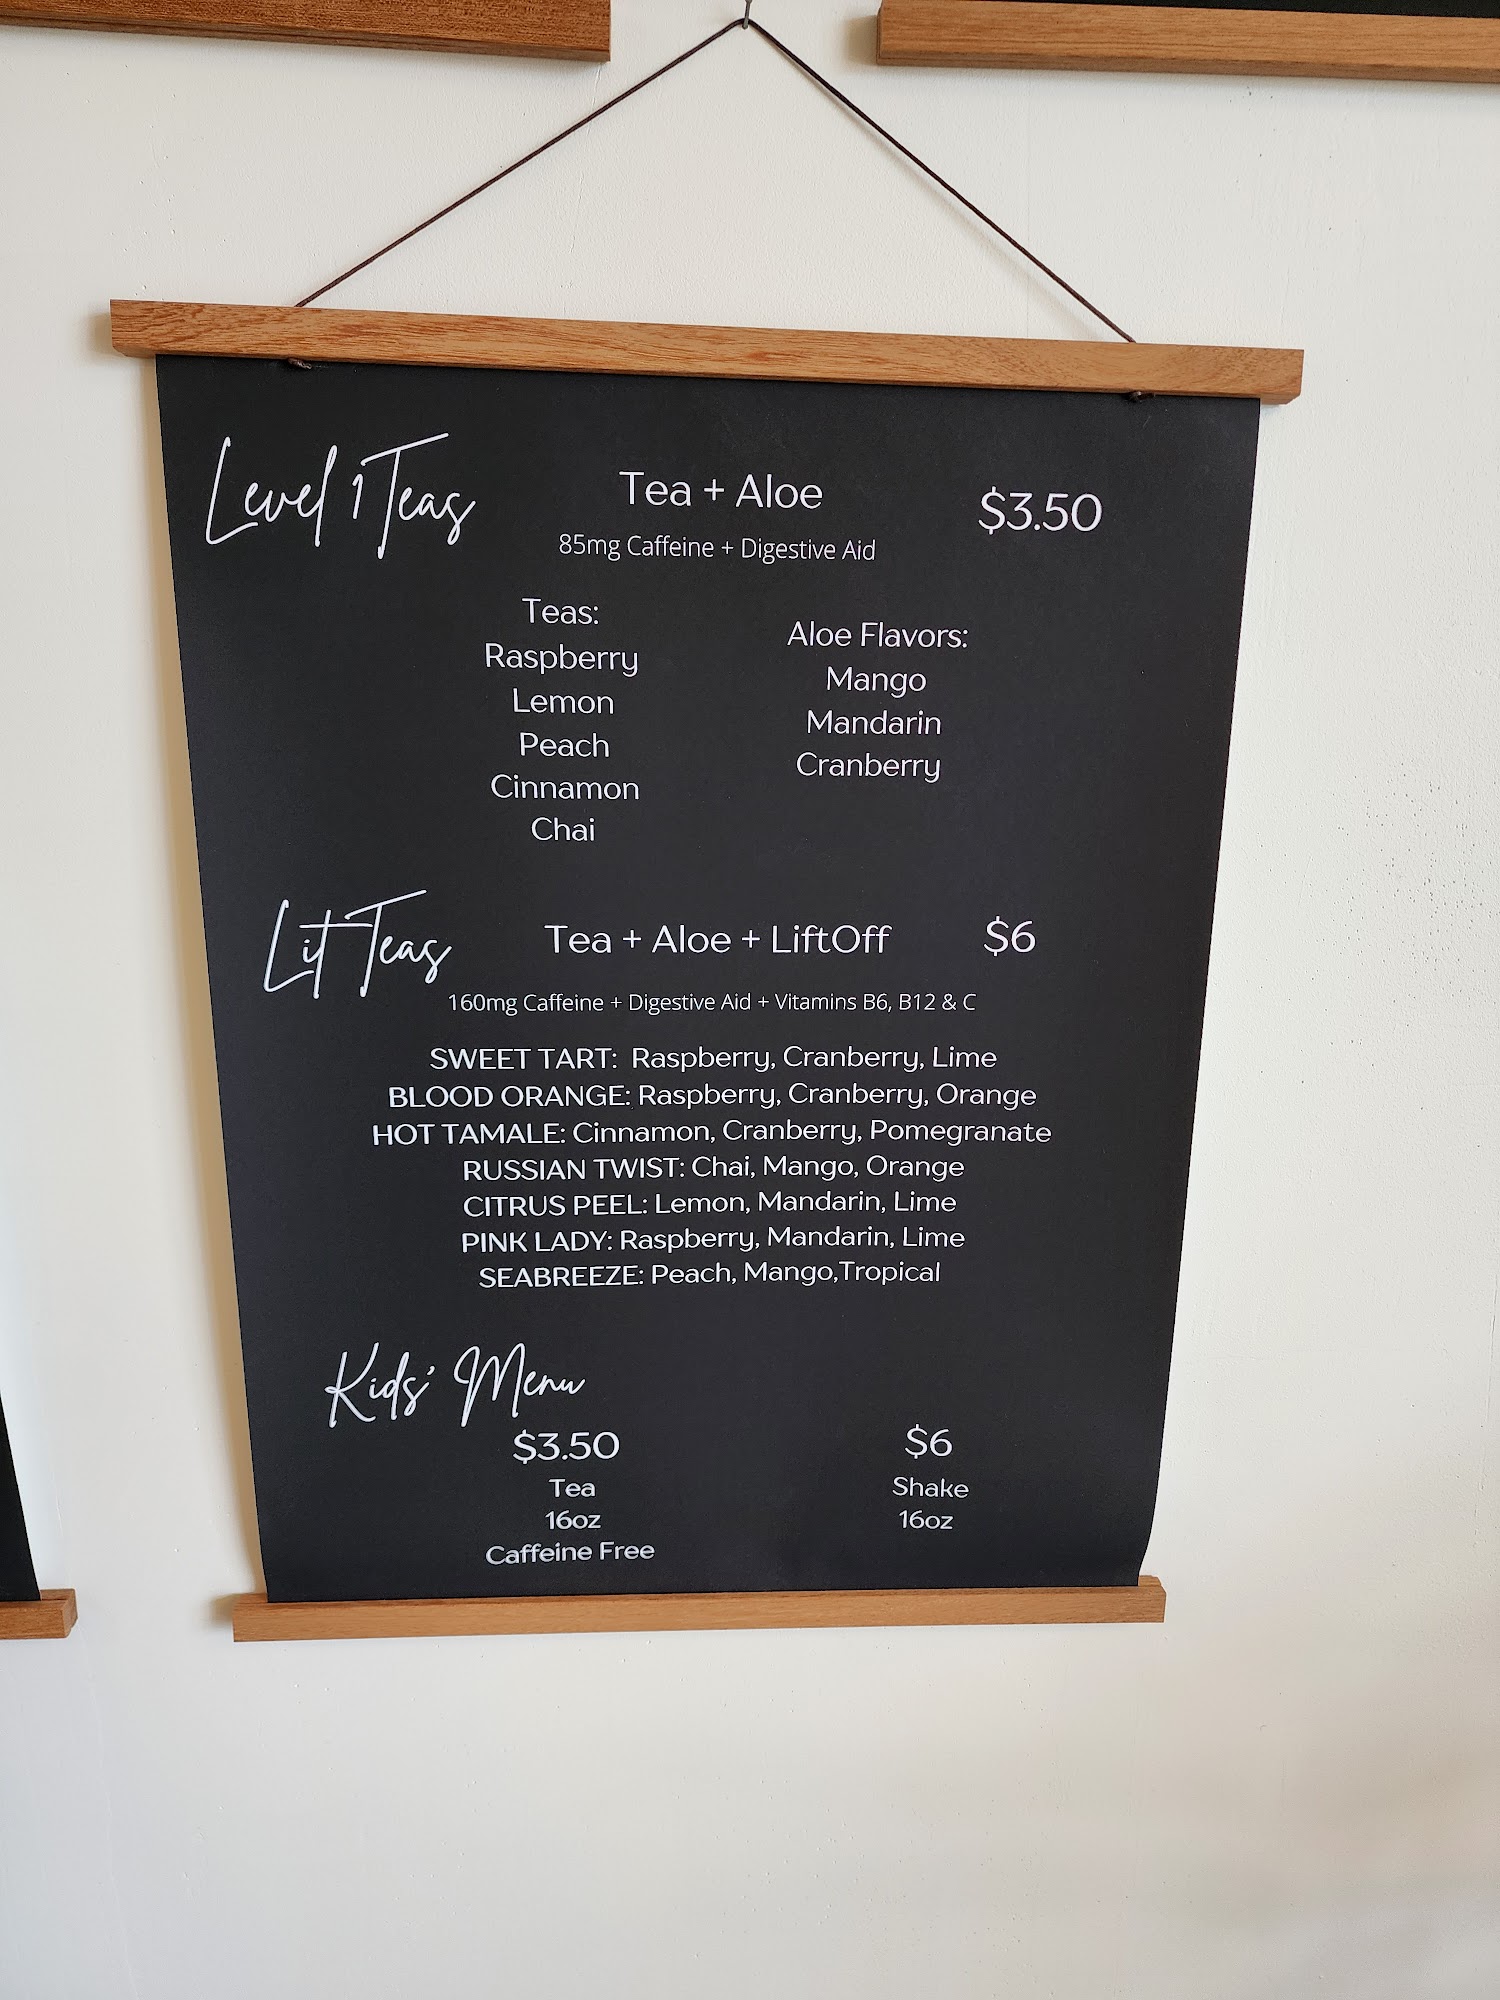 Level 1 Teas
Tea + Aloe
$3.50
85mg Caffeine + Digestive Aid
Teas:
Raspberry
Lemon
Peach
Cinnamon
Chai
Aloe Flavors:
Mango
Mandarin
Cranberry
Lit Teas
Tea + Aloe + LiftOff
$6
160mg Caffeine + Digestive Aid + Vitamins B6, B12 & C
SWEET TART: Raspberry, Cranberry, Lime
BLOOD ORANGE: Raspberry, Cranberry, Orange
HOT TAMALE: Cinnamon, Cranberry, Pomegranate
RUSSIAN TWIST: Chai, Mango, Orange
CITRUS PEEL: Lemon, Mandarin, Lime
PINK LADY: Raspberry, Mandarin, Lime
SEABREEZE: Peach, Mango,Tropical
Kids' Menu
$3.50
Tea
16oz
Caffeine Free
$6
Shake
16oz